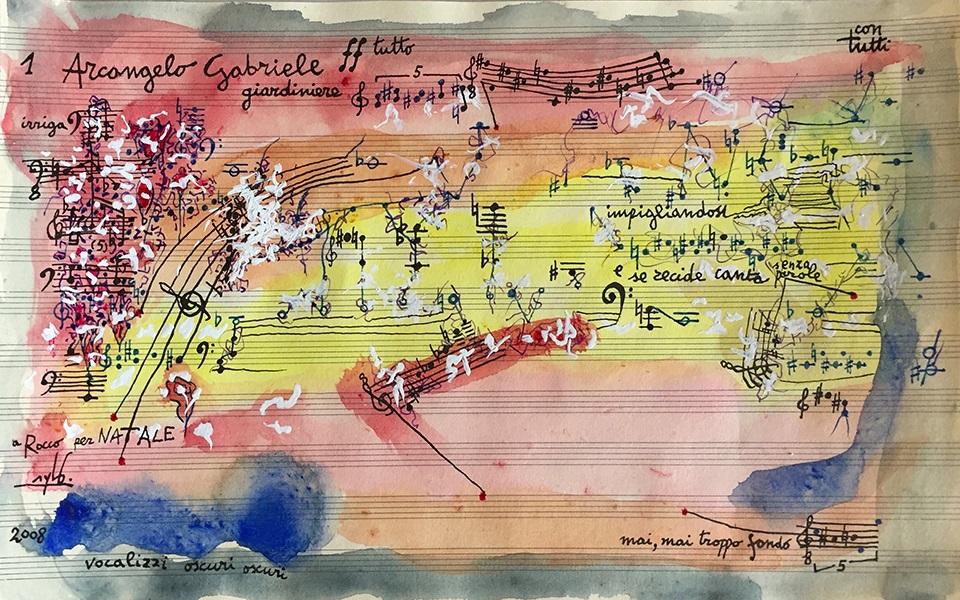 1 Arcangelo Gabriele ff tutto
giardiniere
5
con
tutti
irriga
impigliandosi
e se recide canta senza
parole
a Rocco per NATALE
2008
vocalizzi oscuri oscuri
mai, mai troppo fondo
5